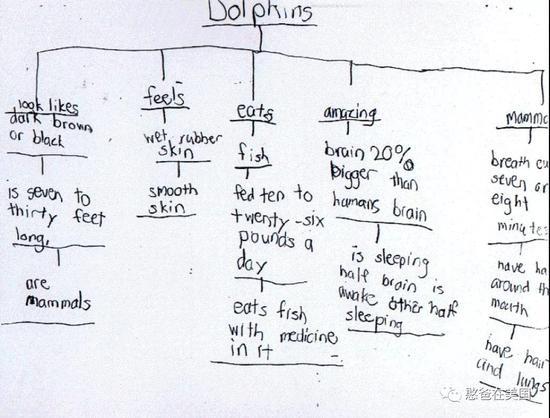 Dolphins
look likes
dark brown
or black
is seven to
thirty feet
long,
are
mammals
feels
wet, rubber
skin
smooth
skin
eats
fish
fed ten to
twensty-six
pounds a
day
eats fish
with medicine
in it
amazing
brain 20%
bigger than
humans brain
is sleeping
half brain is
awake other half
sleeping
breath
seven or
eight
minutes
have
around
mouth
have hair
and lungs
憨爸在美国